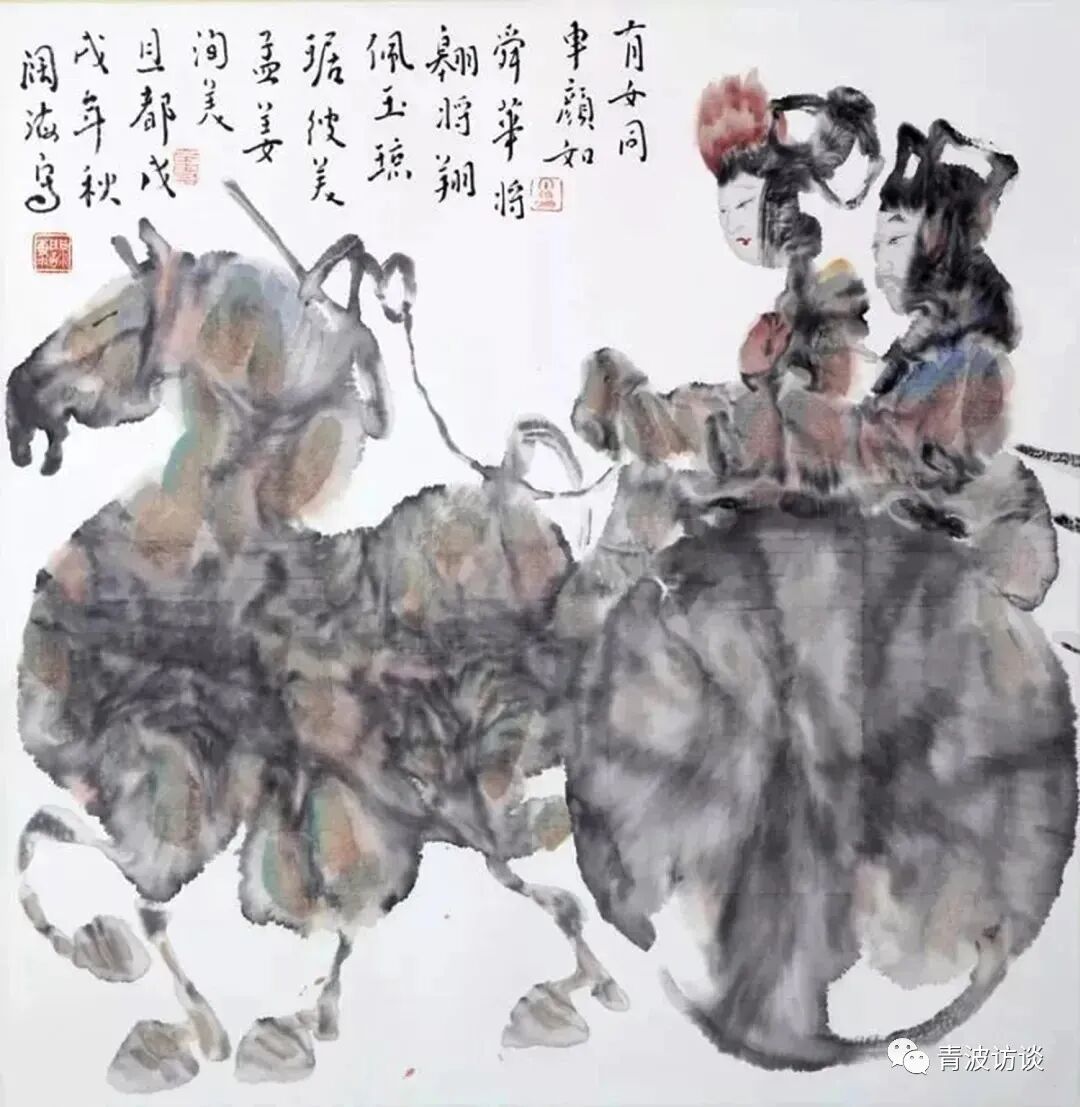 有女同
車顔如
舜華将
翱将翔
佩玉琼
琚彼美
孟姜
洵美
且都戊
戌年秋
阔海写
青波访谈